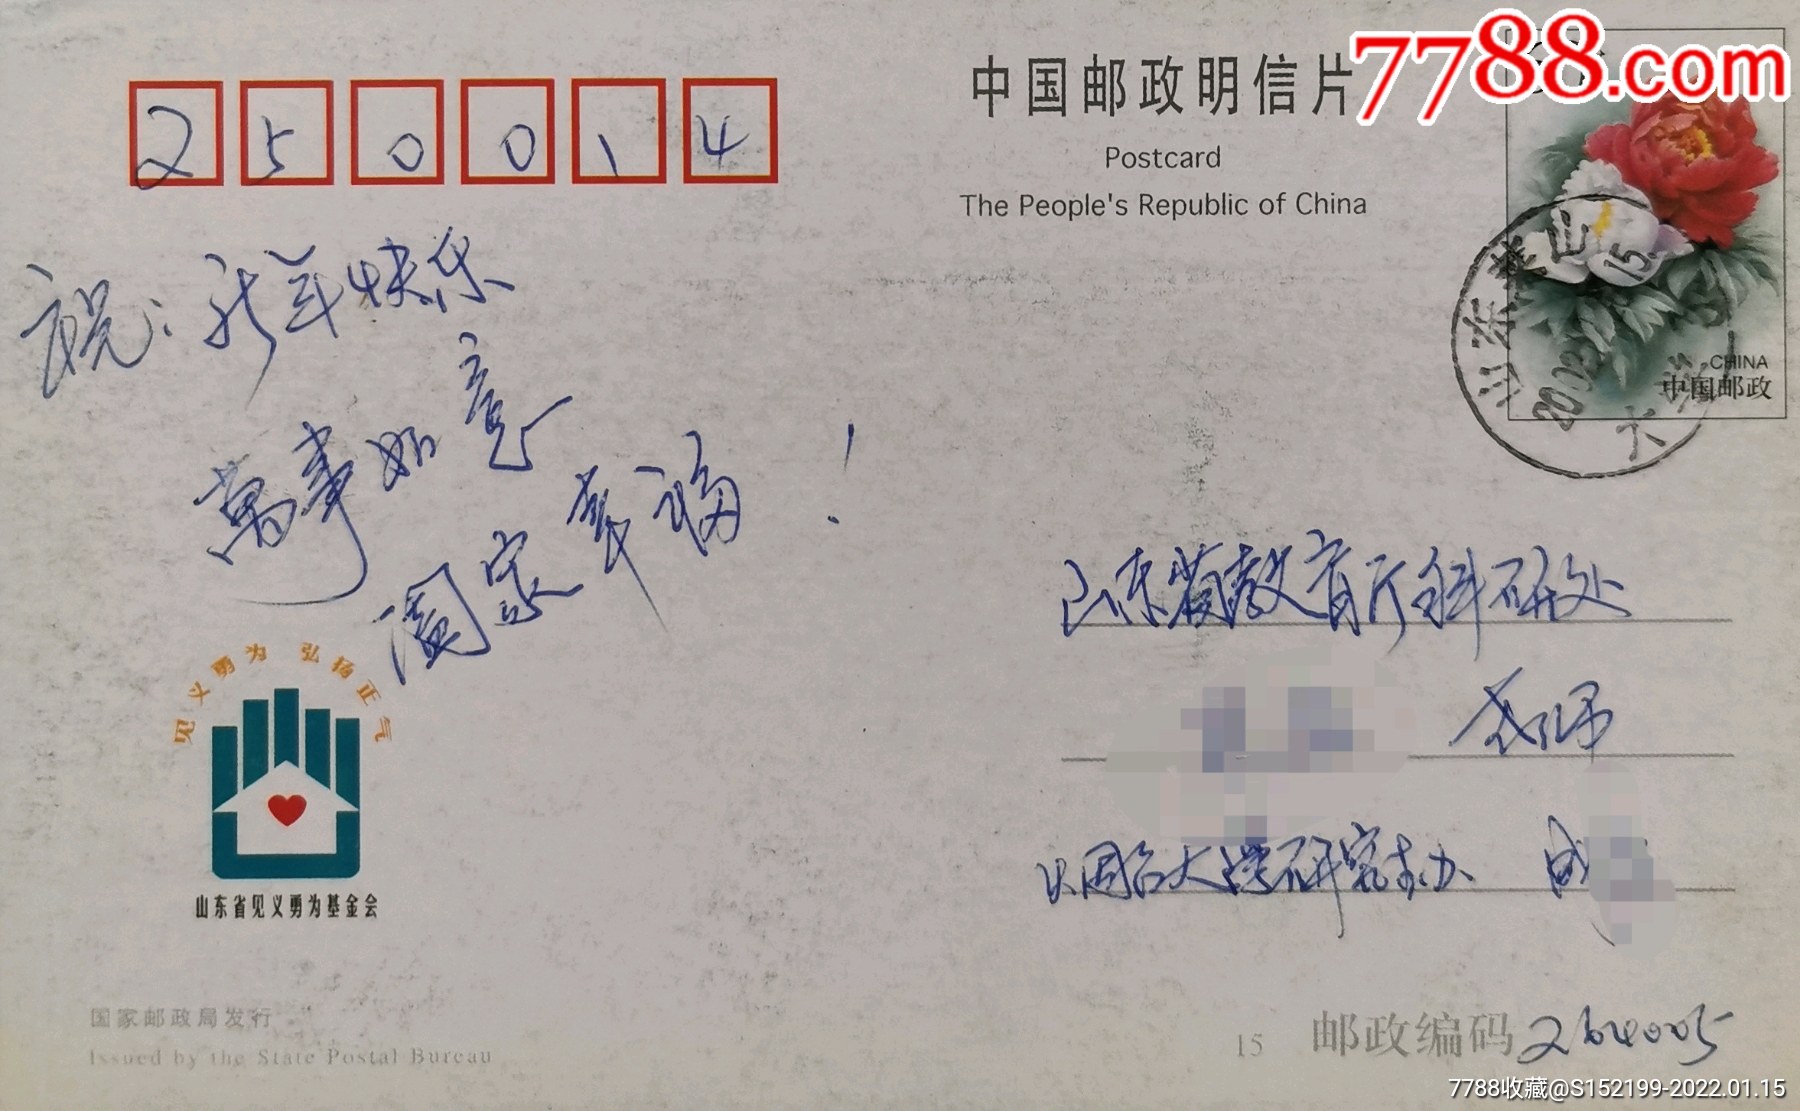 7788.com
中国邮政明信片
Postcard
The People's Republic of China
250014
祝：新年快乐
萬事如意
阖家幸福！
山东
15.
2003
六
CHINA
中国邮政
山东省教育厅科研处
老师
烟台大学研究生办
成
见义勇为 弘扬正气
山东省见义勇为基金会
国家邮政局发行
Issued by the State Postal Bureau
15
邮政编码 264005
7788收藏@S152199-2022.01.15